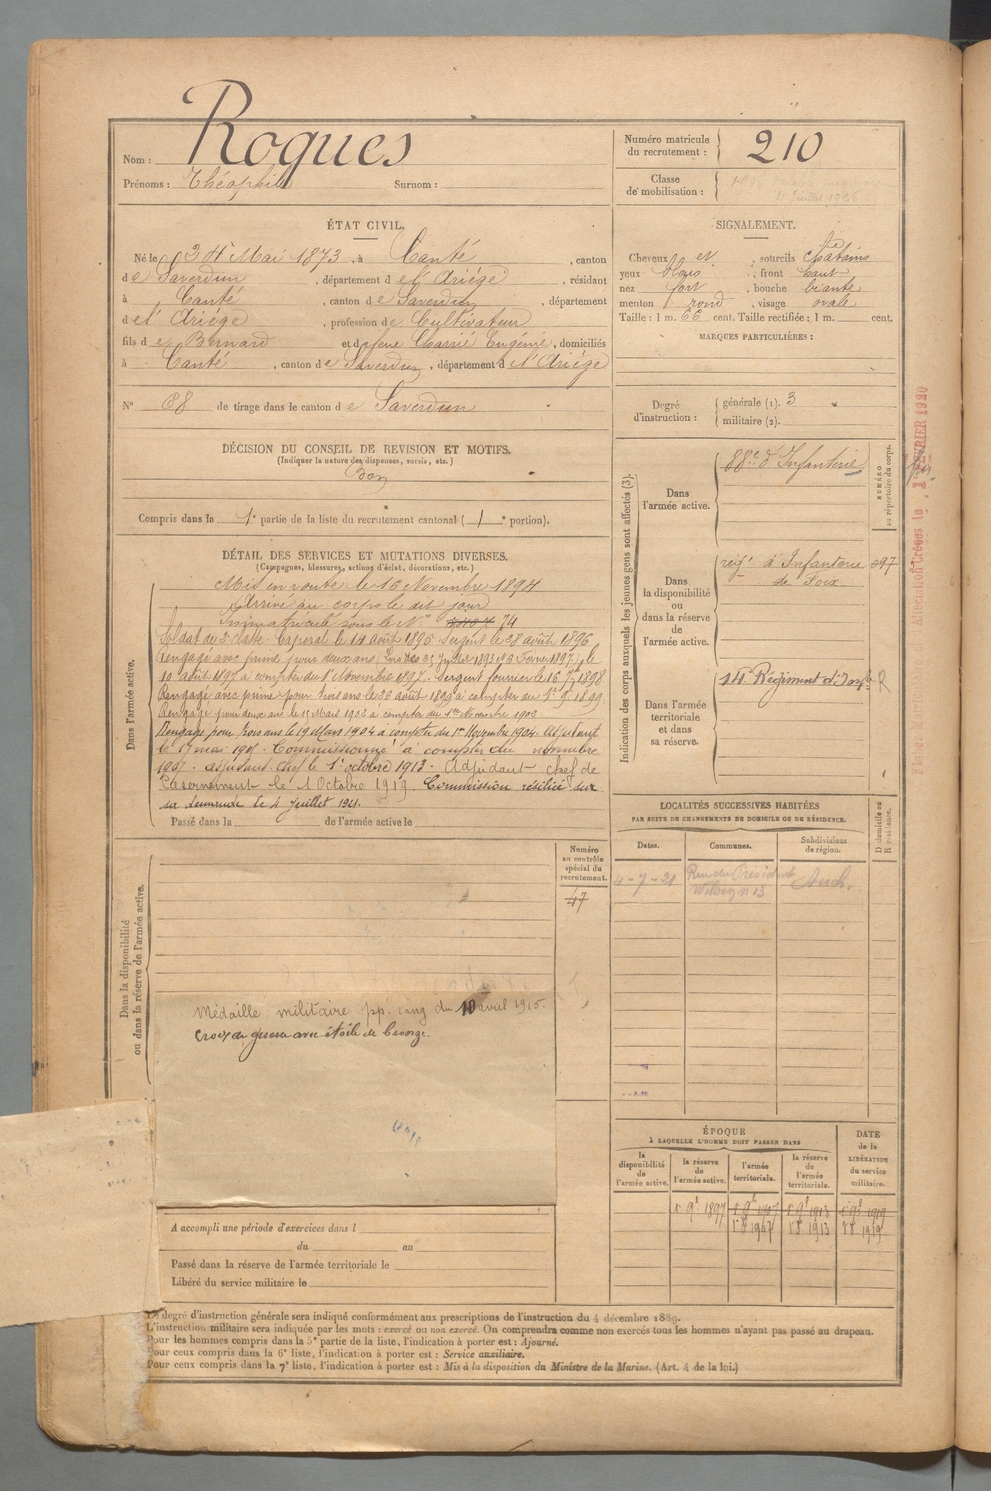 Nom : Roques
Prénoms : Théophile Surnom :
Numéro matricule du recrutement : 210
Classe de mobilisation :
ÉTAT CIVIL.
Né le 24 Mai 1873, à Canté, canton
de Saverdun, département de l'Ariége, résidant
à Canté, canton de Saverdun, département
de l'Ariége, profession de Cultivateur
fils de Bernard et de feue Charrié Eugénie, domiciliés
à Canté, canton de Saverdun, département de l'Ariége
N° 68 de tirage dans le canton de Saverdun
SIGNALEMENT.
Cheveux et ; sourcils chatains
yeux bleus ; front haut
nez fort ; bouche béante
menton rond, visage ovale
Taille : 1 m. 66 cent. Taille rectifiée : 1 m. cent.
MARQUES PARTICULIÈRES :
Degré d'instruction : générale (1). 3
militaire (2).
DÉCISION DU CONSEIL DE REVISION ET MOTIFS.
(Indiquer la nature des dispenses, sursis, etc.)
Bon
Compris dans la 1e partie de la liste du recrutement cantonal ( 1 e portion).
DÉTAIL DES SERVICES ET MUTATIONS DIVERSES.
(Campagnes, blessures, actions d'éclat, décorations, etc.)
Dans l'armée active.
Mis en route le 16 Novembre 1894
Arrivé au corps le dit jour
Immatriculé sous le N° 74
Soldat de 2e classe. Caporal le 14 Août 1895 Sergent le 28 août 1896
Rengagé avec prime pour deux ans le
10 août 1897 à compter du 1er Novembre 1897. Sergent fourrier le 16 1898
Rengagé avec prime pour trois ans le 26 août 1899 à compter du 1er 9 1899
Rengagé pour deux ans le 11 Mars 1902 à compter du 1er Novembre 1902
Rengagé pour trois ans le 19 Mars 1904 à compter du 1er Novembre 1904. Adjudant
le 17 mai 1907. Commissionné à compter du novembre
1907. Adjudant Chef le 1er octobre 1913. Adjudant chef de
Casernement le 1 Octobre 1919. Commission résilié sur
sa demande le 4 Juillet 1921.
Passé dans la de l'armée active le
Indication des corps auxquels les jeunes gens sont affectés (3).
Dans l'armée active.
88e d'Infanterie
NUMÉRO au répertoire du corps.
Dans la disponibilité ou dans la réserve de l'armée active.
régt d'Infanterie 097
de Foix
Dans l'armée territoriale et dans sa réserve.
14e Régiment d'Infie R
LOCALITÉS SUCCESSIVES HABITÉES
PAR SUITE DE CHANGEMENTS DE DOMICILE OU DE RÉSIDENCE.
D domicile ou R résidence.
Dates. Communes. Subdivisions de région.
4-7-21 Rue du Président Auch.
Wilson n 13
Dans la disponibilité ou dans la réserve de l'armée active.
Numéro au contrôle spécial du recrutement.
47
Médaille militaire pp. rang du 10 avril 1915.
Croix de guerre avec étoile de bronze.
A accompli une période d'exercices dans l
du au
Passé dans la réserve de l'armée territoriale le
Libéré du service militaire le
ÉPOQUE
À LAQUELLE L'HOMME DOIT PASSER DANS
DATE de la LIBÉRATION du service militaire.
la disponibilité de l'armée active. la réserve de l'armée active. l'armée territoriale. la réserve de l'armée territoriale.
1er 9e 1897 1er 9e 1907 1er 9e 1913 1er 9e 1919
1er 8 1907 1er 8 1913 1er 8 1919
Le degré d'instruction générale sera indiqué conformément aux prescriptions de l'instruction du 4 décembre 1889.
L'instruction militaire sera indiquée par les mots : exercé ou non exercé. On comprendra comme non exercés tous les hommes n'ayant pas passé au drapeau.
Pour les hommes compris dans la 5e partie de la liste, l'indication à porter est : Ajourné.
Pour ceux compris dans la 6e liste, l'indication à porter est : Service auxiliaire.
Pour ceux compris dans la 7e liste, l'indication à porter est : Mis à la disposition du Ministre de la Marine. (Art. 4 de la loi.)